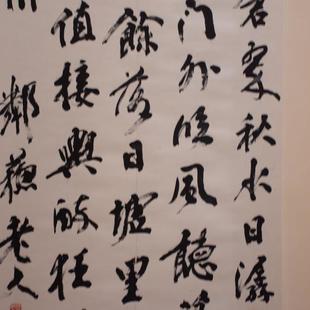 蒼翠秋水日潺
門外臨風聽
餘落日墟里
值接輿醉狂
鄰蘇老人